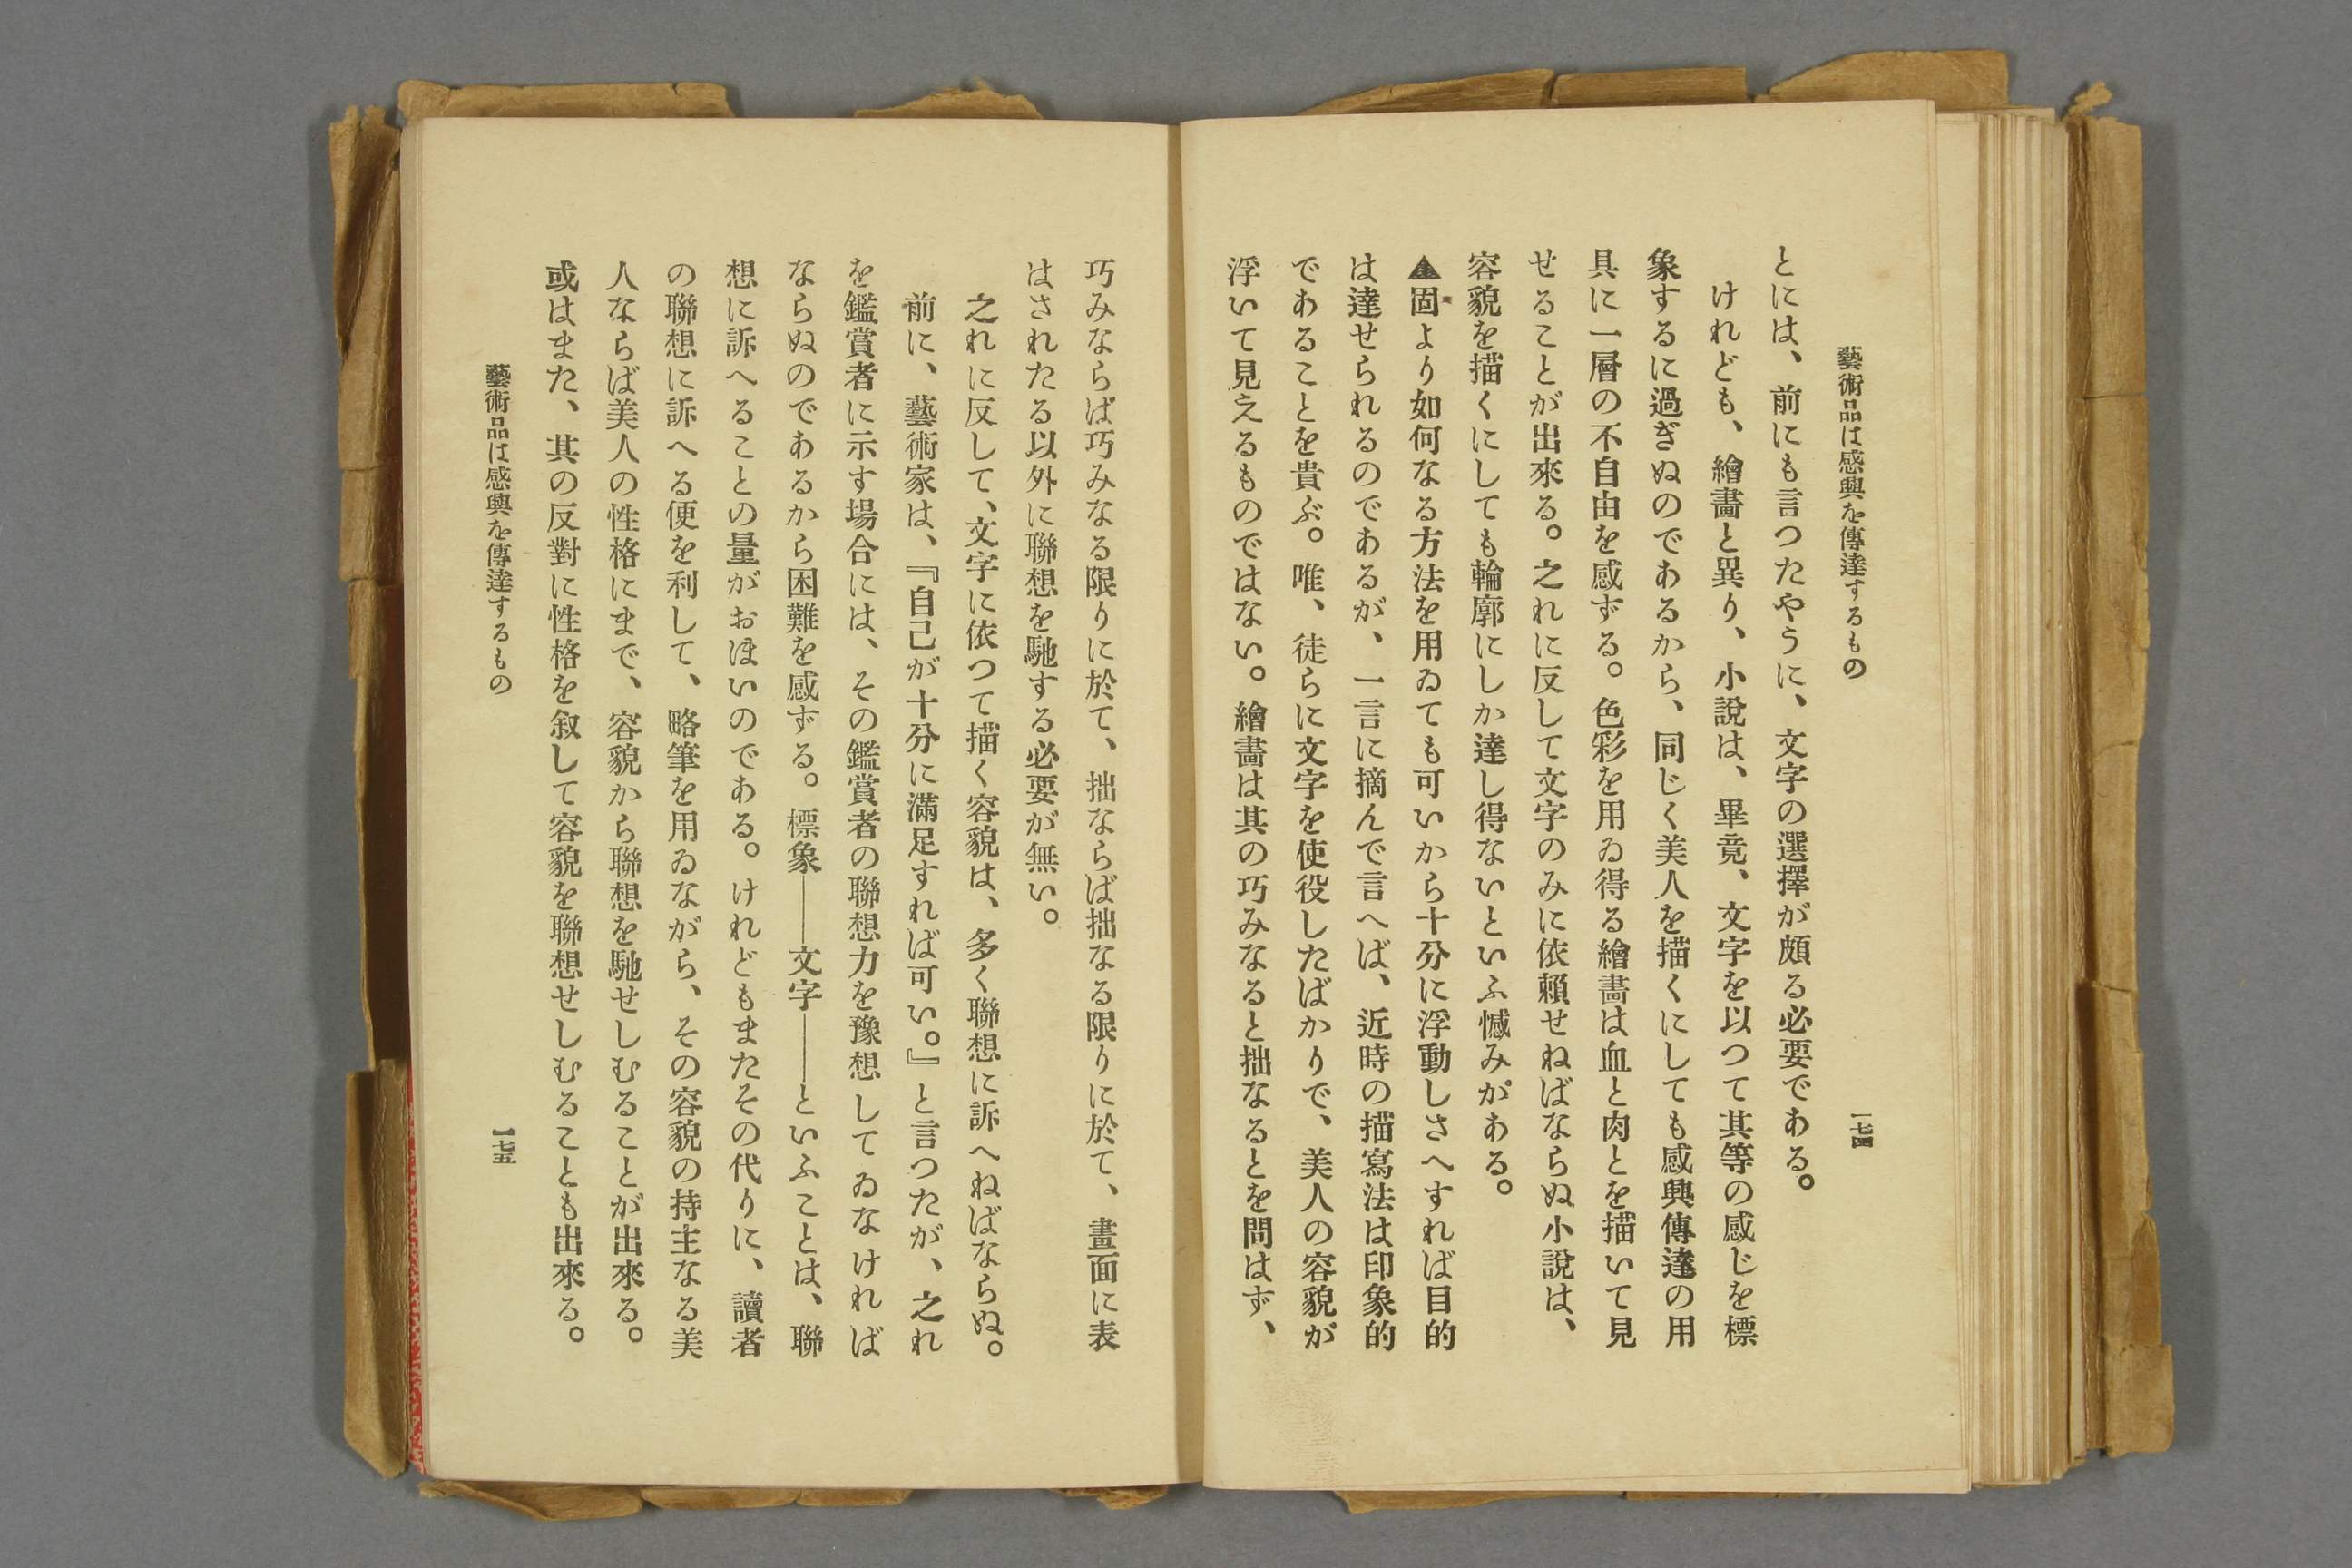 藝術品は感興を傳達するもの
一七四
とには、前にも言つたやうに、文字の選擇が頗る必要である。
けれども、繪畵と異り、小說は、畢竟、文字を以つて其等の感じを標
象するに過ぎぬのであるから、同じく美人を描くにしても感興傳達の用
具に一層の不自由を感ずる。色彩を用ゐ得る繪畵は血と肉とを描いて見
せることが出來る。之れに反して文字のみに依賴せねばならぬ小說は、
容貌を描くにしても輪廓にしか達し得ないといふ憾みがある。
▲固より如何なる方法を用ゐても可いから十分に浮動しさへすれば目的
は達せられるのであるが、一言に摘んで言へば、近時の描寫法は印象的
であることを貴ぶ。唯、徒らに文字を使役したばかりで、美人の容貌が
浮いて見えるものではない。繪畵は其の巧みなると拙なるとを問はず、
巧みならば巧みなる限りに於て、拙ならば拙なる限りに於て、畫面に表
はされたる以外に聯想を馳する必要が無い。
之れに反して、文字に依つて描く容貌は、多く聯想に訴へねばならぬ。
前に、藝術家は、『自己が十分に滿足すれば可い。』と言つたが、之れ
を鑑賞者に示す場合には、その鑑賞者の聯想力を豫想してゐなければ
ならぬのであるから困難を感ずる。標象――文字――といふことは、聯
想に訴へることの量がおほいのである。けれどもまたその代りに、讀者
の聯想に訴へる便を利して、略筆を用ゐながら、その容貌の持主なる美
人ならば美人の性格にまで、容貌から聯想を馳せしむることが出來る。
或はまた、其の反對に性格を叙して容貌を聯想せしむることも出來る。
藝術品は感興を傳達するもの
一七五